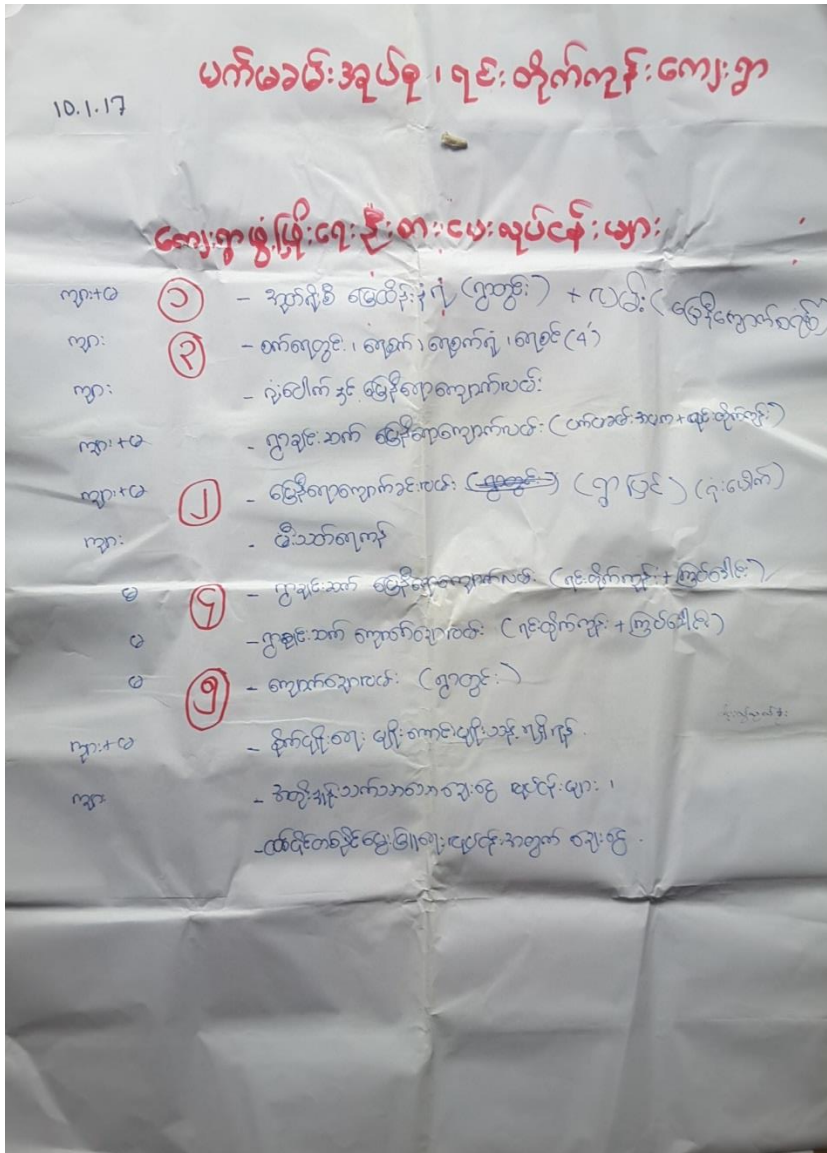 ပက်မခမ်းအုပ်စု ၊ ရင်းတိုက်ကုန်းကျေးရွာ
10.1.17
ကျေးရွာဖွံ့ဖြိုးရေးဦးစားပေးလုပ်ငန်းများ
ကျား+မ ၁ - အုတ်စီ မြေထိန်းနံရံ (ရွာတွင်း) + လမ်း (မြေနီကျောက်စရစ်)
ကျား ၃ - စက်ရေတွင်း ၊ ရေစက် ၊ ရေစက်ရုံ ၊ ရေစင် (4')
ကျား - ဂုံးပေါက် နှင့် မြေနီရောကျောက်လမ်း
ကျား+မ - ရွာချင်းဆက် မြေနီရောကျောက်လမ်း (ပက်မခမ်း + ရင်းတိုက်ကုန်း)
ကျား+မ ၂ - မြေနီရောကျောက်ခင်းလမ်း (ရွာတွင်း) (ရွာပြင်) (ဂုံးပေါက်)
ကျား - မီးသတ်ရေကန်
မ ၄ - ရွာချင်းဆက် မြေနီရောကျောက်လမ်း (ရင်းတိုက်ကုန်း + ကြပ်ခေါင်း)
မ - ရွာချင်းဆက် ကျောက်ချောလမ်း (ရင်းတိုက်ကုန်း + ကြပ်ခေါင်း)
မ ၅ - ကျောက်ချောလမ်း (ရွာတွင်း)
ကျား+မ - စိုက်ပျိုးရေး မျိုးကောင်းမျိုးသန့် ရရှိရန်
ကျား - အတိုးနှုန်းသက်သာသောချေးငွေ လုပ်ငန်းများ ၊
- တစ်ပိုင်တစ်နိုင်မွေးမြူရေးလုပ်ငန်းအတွက် ချေးငွေ ။